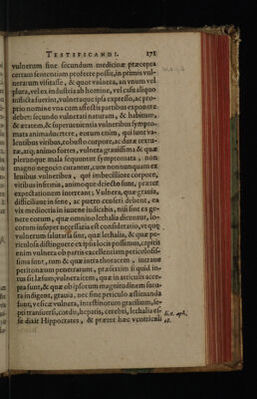 TESTIFICANDI. 171
vulnerum sine secundum medicinæ præcepta
certam sententiam proferre possit, in primis vul-
nerum visitasse, & quot vulnera, an vnum vel
plura, vel ex industria ab homine, vel casu aliquo
inflicta fuerint, vulneraque ipsa expresso, ac pro-
prio nomine vna cum affectis partibus exponere
debet: secundo vulnerati naturam, & habitum,
& ætatem, & superuenientia vulneribus sympto-
mata animaduertere, eorum enim, qui sunt va-
lentibus viribus, robusto corpore, ac duræ textu-
ræ, atq; animo fortes, vulnera grauissima & quæ
plerunque mala sequuntur symptomata, non
magno negocio curantur, cum nonnunquam ex
leuibus vulneribus, qui imbecilliore corpore,
viribus infirmis, animoque deiecto sunt, præter
expectationem intereant; Vulnera, quæ grauia,
difficilia ne in sene, ac puero censeri debent, ea
vix mediocria in iuuene iudicabis, nisi sint ex ge-
nere eorum, quæ omnino lethalia dicuntur, lo-
corum insuper necessaria est consideratio, neque
vulnerum salutaria sint, quæ lethalia, & quæ pe-
riculosa distinguere ex ipsis locis possimus, capitis
enim vulnera ob partis excellentiam periculosis-
sima sunt, tum & quæ intra thoracem, intraue
peritonæum penetrarunt, præsertim si quid in-
tus sit læsum, vulnera item, quæ in articulis acce-
pta sunt, & quæ ob ipsorum magnitudinem sutu-
ra indigent, grauia, nec sine periculo æstimanda
sunt, vesicæ vulnera, intestinorum gracilium, se-
pti transuersi, cordis, hepatis, cerebri, lethalia es-
se dixit Hippocrates, & præter hæc ventriculi
lib. aph.
18.